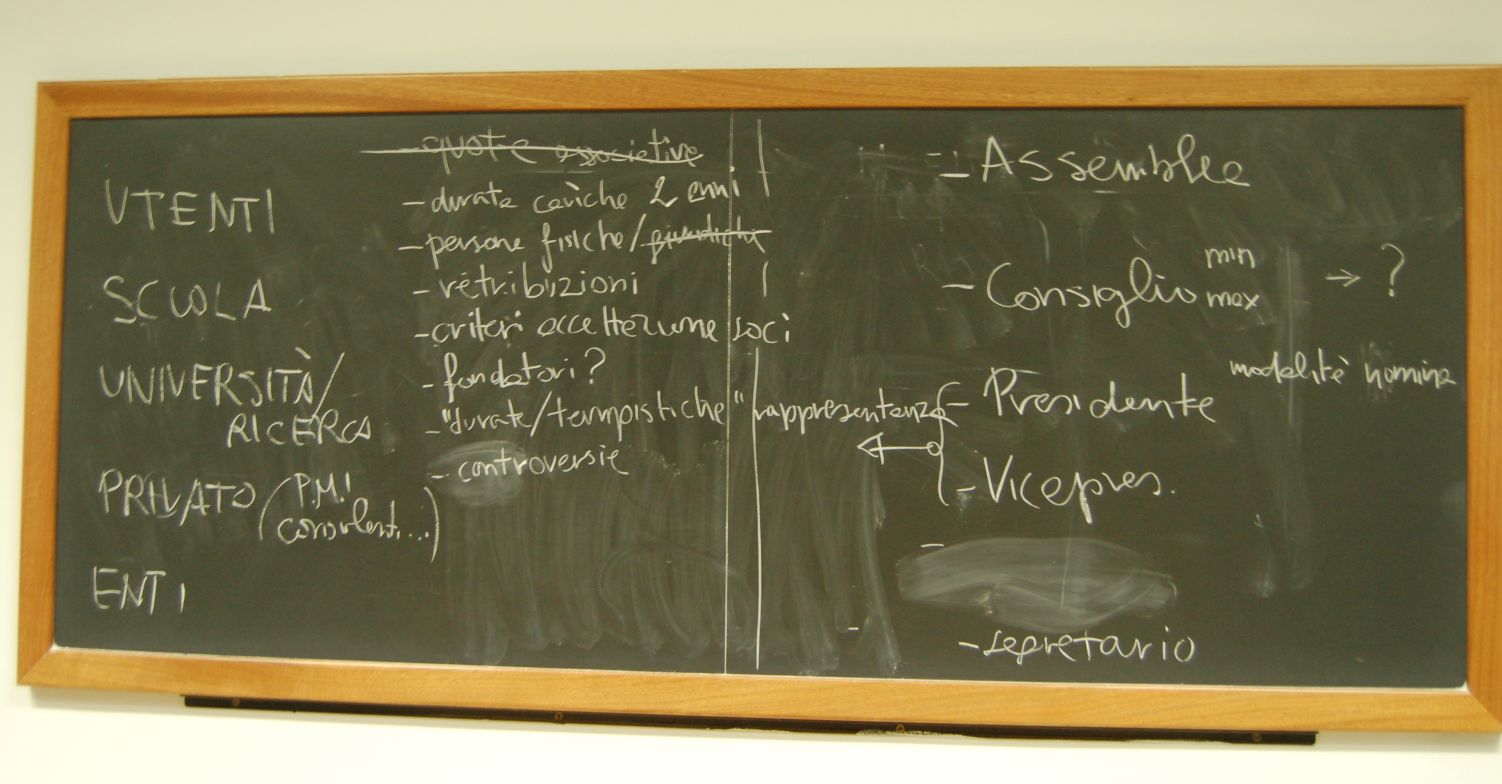 UTENTI
SCUOLA
UNIVERSITÀ/
RICERCA
PRIVATO (P.M.I
consulenti...)
ENTI
- quote associative
- durata cariche 2 anni
- persone fisiche/giuridiche
- retribuzioni
- criteri accettazione soci
- fondatori?
- "durate/tempistiche" rappresentanza
- controversie
- Assemblea
- Consiglio min max → ?
modalità nomina
- Presidente
- Vicepres.
-
- segretario